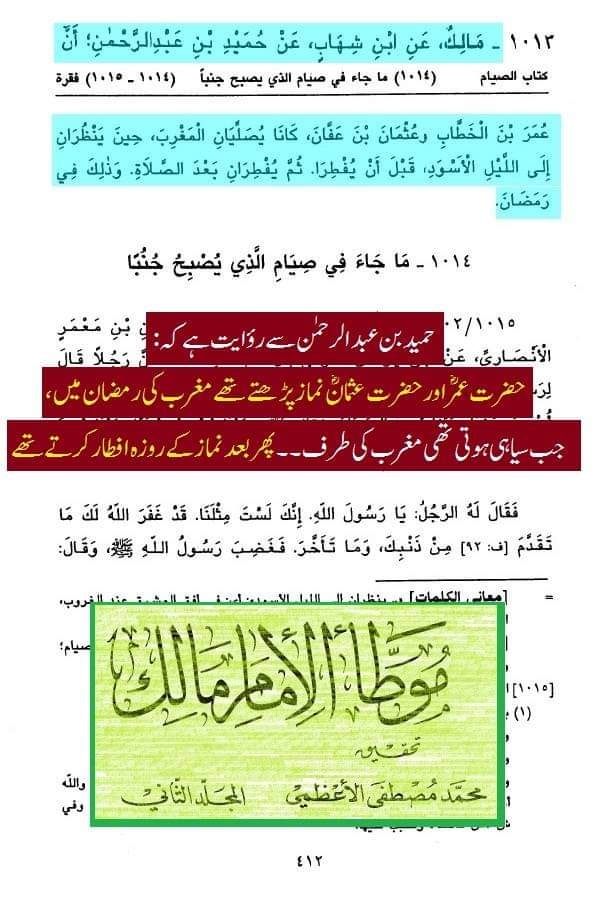 ١٠١٣ - مَالِكٌ، عَنِ ابْنِ شِهَابٍ، عَنْ حُمَيْدِ بْنِ عَبْدِالرَّحْمٰنِ؛ أَنَّ
كتاب الصيام (١٠١٤) ما جاء في صيام الذي يصبح جنباً (١٠١٤ - ١٠١٥) فقرة
عُمَرَ بْنَ الْخَطَّابِ وعُثْمَانَ بْنَ عَفَّانَ، كَانَا يُصَلِّيَانِ الْمَغْرِبَ، حِينَ يَنْظُرَانِ
إِلَى اللَّيْلِ الْأَسْوَدِ، قَبْلَ أَنْ يُفْطِرَا. ثُمَّ يُفْطِرَانِ بَعْدَ الصَّلَاةِ. وَذٰلِكَ فِي
رَمَضَانَ.
١٠١٤ - مَا جَاءَ فِي صِيَامِ الَّذِي يُصْبِحُ جُنُبًا
٠٢/١٠١٥ نِ بْنِ مَعْمَرٍ
حمید بن عبد الرحمٰن سے رؤایت ہے کہ:
الْأَنْصَارِيِّ، عَنْ رَجُلاً قَالَ
حضرت عمرؓ اور حضرت عثمانؓ نماز پڑھتے تھے مغرب کی رمضان میں،
جب سیاہی ہوتی تھی مغرب کی طرف۔۔ پھر بعد نماز کے روزہ افطار کرتے تھے
فَقَالَ لَهُ الرَّجُلُ: يَا رَسُولَ اللهِ. إِنَّكَ لَسْتَ مِثْلَنَا. قَدْ غَفَرَ اللهُ لَكَ مَا
تَقَدَّمَ [ف: ٩٢] مِنْ ذَنْبِكَ، وَمَا تَأَخَّرَ. فَغَضِبَ رَسُولُ اللهِ ﷺ، وَقَالَ:
= [معاني الكلمات] الغروب،
صيام؛
[١٠١٥]
(١)
موطأ الإمام مالك
تحقيق
محمد مصطفى الأعظمي المجلد الثاني
والله
وفي
٤١٢